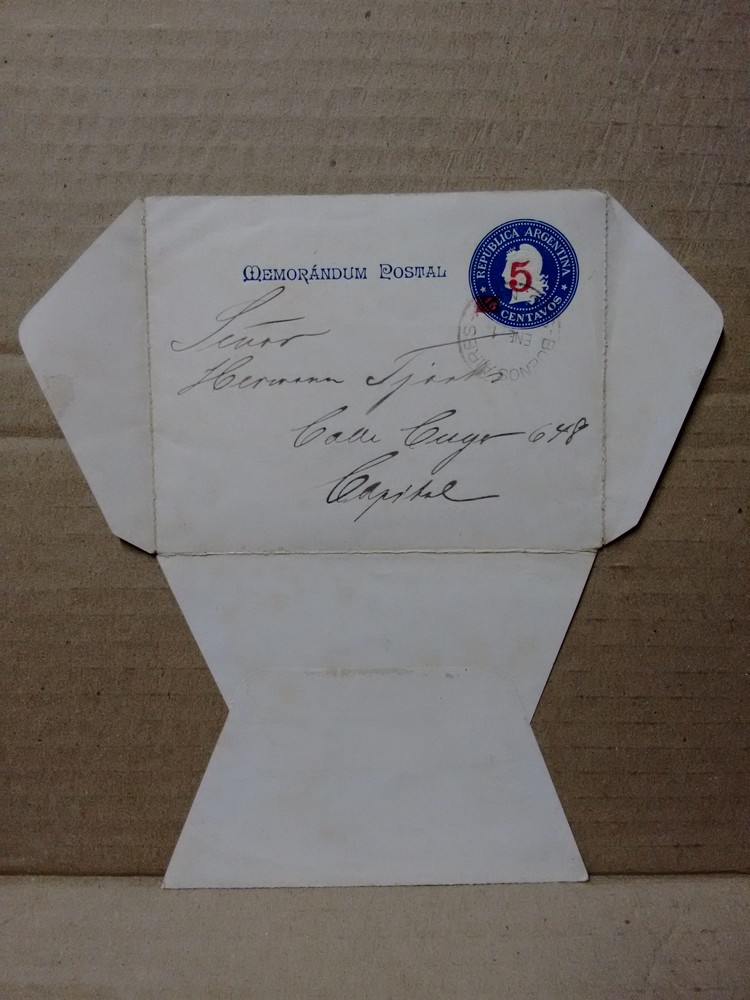 REPUBLICA ARGENTINA
5
CENTAVOS
MEMORÁNDUM POSTAL
BUENOS AIRES
ENE
Señor
Hermann
Calle Cuyo 648
Capital